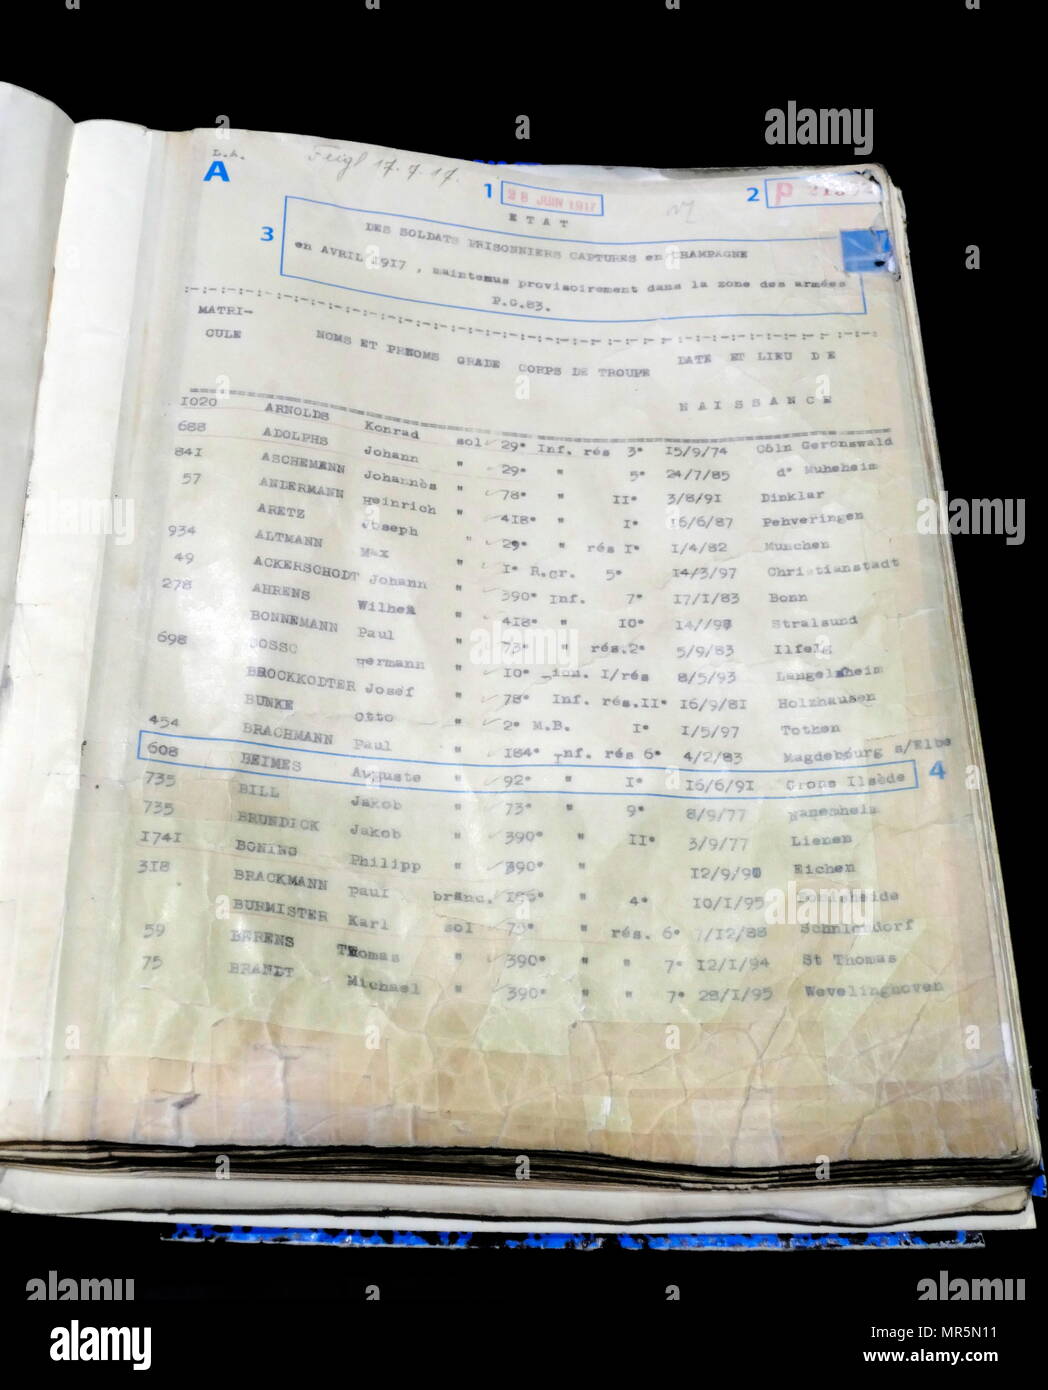 L.A.
A
Feigl 17.7.17.
1 28 JUIN 1917
2 P
ETAT
3 DES SOLDATS PRISONNIERS CAPTURES en CHAMPAGNE
en AVRIL 1917 , maintenus provisoirement dans la zone des armées
P.G.83.
MATRI-
CULE NOMS ET PRENOMS GRADE CORPS DE TROUPE DATE ET LIEU DE
NAISSANCE
1020 ARNOLDS Konrad sol 29° Inf. rés 3° 15/9/74 Cöln Geronswald
688 ADOLPHS Johann " 29° " 5° 24/7/85 d° Muheheim
841 ASCHEMANN Johannès " 78° " II° 3/8/91 Dinklar
57 ANDERMANN Heinrich " 418° " I° 16/6/87 Pehveringen
ARETZ Joseph " 29° " rés I° 1/4/82 Munchen
934 ALTMANN Max " I° R.Cr. 5° 14/3/97 Christianstadt
49 ACKERSCHODT Johann " 390° Inf. 7° 17/1/83 Bonn
278 AHRENS Wilhem " 418° " 10° Stralsund
BONNEMANN Paul " 73° " rés.2° 5/9/83 Ilfelg
698 germann " 10° I/rés 8/5/93 Langelsheim
BROCKKODTER Josef " 78° Inf. rés.II° 16/9/81 Holzhausen
BUNKE Otto " 2° M.B. I° 1/5/97 Totken
454 BRACHMANN Paul " 184° Inf. rés 6° 4/2/83 Magdebourg s/Elbe
608 BEIMES Auguste " 92° " I° 16/6/91 Grons Ilsède 4
735 BILL Jakob " 73° " 9° 8/9/77 Wanemheim
735 BRUNDICK Jakob " 390° " II° 3/9/77 Lienen
1741 BONING Philipp " 390° " 12/9/90 Eichen
318 BRACKMANN paul branc. 186° " 4° 10/1/95
BURMISTER Karl sol 73° " rés. 6° 7/12/88
59 BERENS Thomas " 390° " " 7° 12/1/94 St Thomas
75 BRANDT Michael " 390° " " 7° 28/1/95 Wevelinghoven
a
alamy
alamy
alamy
alamy
alamy
a
alamy
Image ID: MR5N11
www.alamy.com